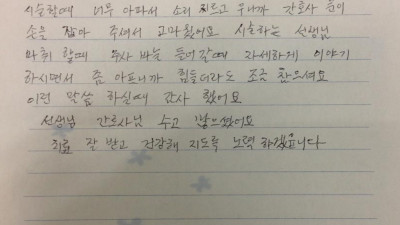 시술할때 너무 아파서 소리 지르고 우니까 간호사 분이
손을 잡아 주셔서 고마웠어요 시술하는 선생님
마취 할때 주사 바늘 들어갈때 자세하게 이야기
하시면서 좀 아프니까 힘들더라도 조금 참으셔요
이런 말씀 하실때 감사 했어요
선생님 간호사님 수고 많으셨어요
치료 잘 받고 건강해 지도록 노력 하겠습니다